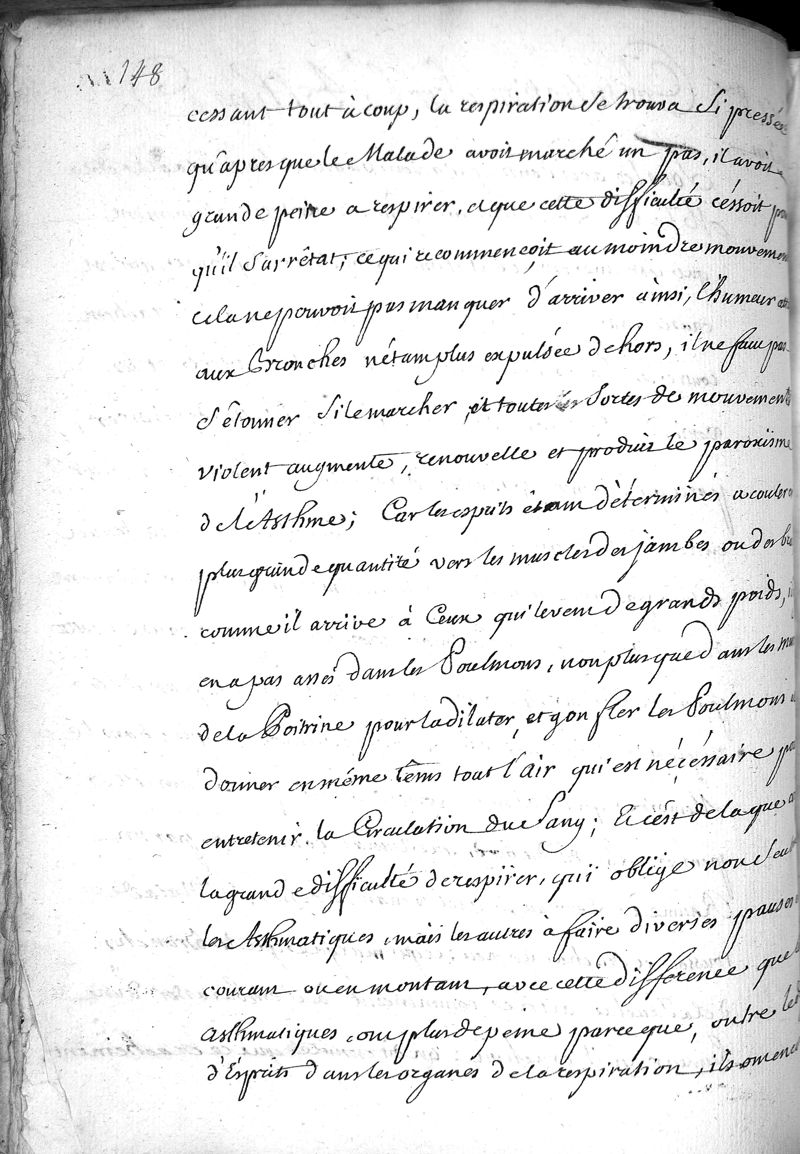 148
cessant tout à coup, la respiration se trouva si pressée
qu'apres que le Malade avoit marché un pas, il avoit
grande peine a respirer, et que cette difficulté céssoit
qu'il s'arrêtat; ce qui recommençoit au moindre mouvement
cela ne pouvoit pas manquer d'arriver àinsi, l'humeur
aux Bronches nétant plus expulsée dehors, il ne faut pas
s'étonner si le marcher et toutes les sortes de mouvement
violent augmente, renouvelle et produit le paroxisme
de l'Asthme; Car les esprits étant dèterminés a couler
plus grande quantité vers les muscles des jambes ou des
comme il arrive à Ceux qui levent de grands poids,
en a pas assés dans les Poulmons, non plus que dans les
de la Poitrine pour la dilater, et gonfler les Poulmons
donner en méme têms tout l'air qui est nécéssaire
entretenir la Circulation du Sang; Et c'est de la que
la grande difficulté de respirer, qui oblige non seul
les Asthmatiques, mais les autres à faire diverses pauses
courant ou en montant, avec cette difference que
asthmatiques ont plus de peine parce que, outre le
d'Esprits dans les organes de la respiration, ils ont enc